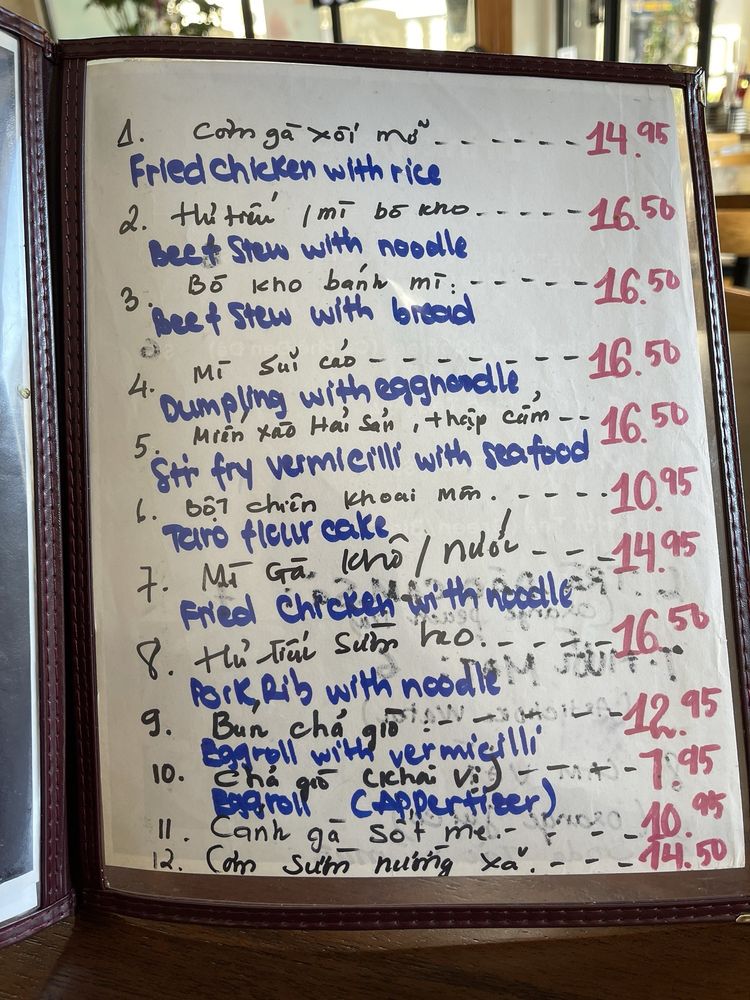 1. Cơm gà xối mỡ ........ 14.95
Fried chicken with rice
2. Hủ tiếu / mì bò kho ........ 16.50
Beef Stew with noodle
3. Bò kho bánh mì: ........ 16.50
Beef Stew with bread
4. Mì Suỉ cảo -------- 16.50
Dumpling with eggnoodle
5. Miến xào Hải Sản, thập cẩm -- 16.50
Stir fry vermicilli with seafood
6. bột chiên khoai môn. ---- 10.95
Taro flour cake
7. Mì Gà khô / nước --- 14.95
Fried Chicken with noodle
8. Hủ tiếu Sườn heo. ---- 16.50
Pork, Rib with noodle
9. Bún chả giò: ----- 12.95
Eggroll with vermicilli
10. Chả giò (khai vị) ---- 7.95
Eggroll (Appertizer)
11. Canh gà sốt me. ---- 10.95
12. Cơm sườn nướng xả. --- 14.50